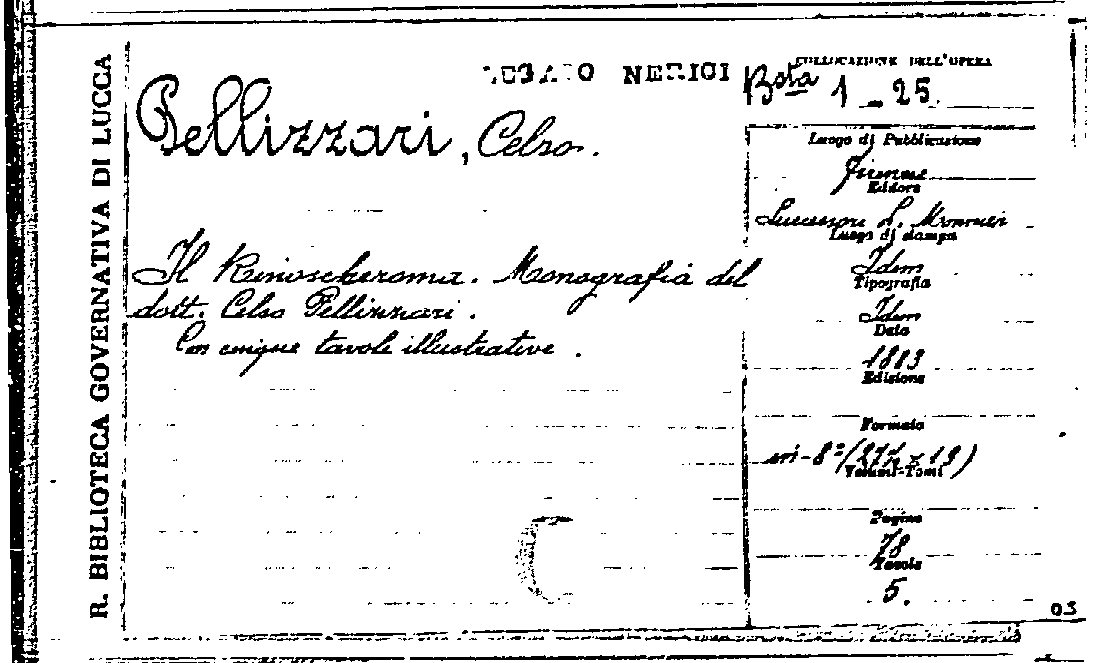 R. BIBLIOTECA GOVERNATIVA DI LUCCA
NERICI
COLLOCAZIONE DELL'OPERA
Bsta 1 - 25
Pellizzari, Celso.
Il Rinoscheroma. Monografia del
dott. Celso Pellizzari.
Con cinque tavole illustrative.
Luogo di Pubblicazione
Firenze
Editore
Successori L. Monnier
Luogo di stampa
Idem
Tipografia
Idem
Data
1883
Edizione
Formato
in-8° (27½ x 19)
Volumi-Tomi
Pagine
78
Tavole
5.
03